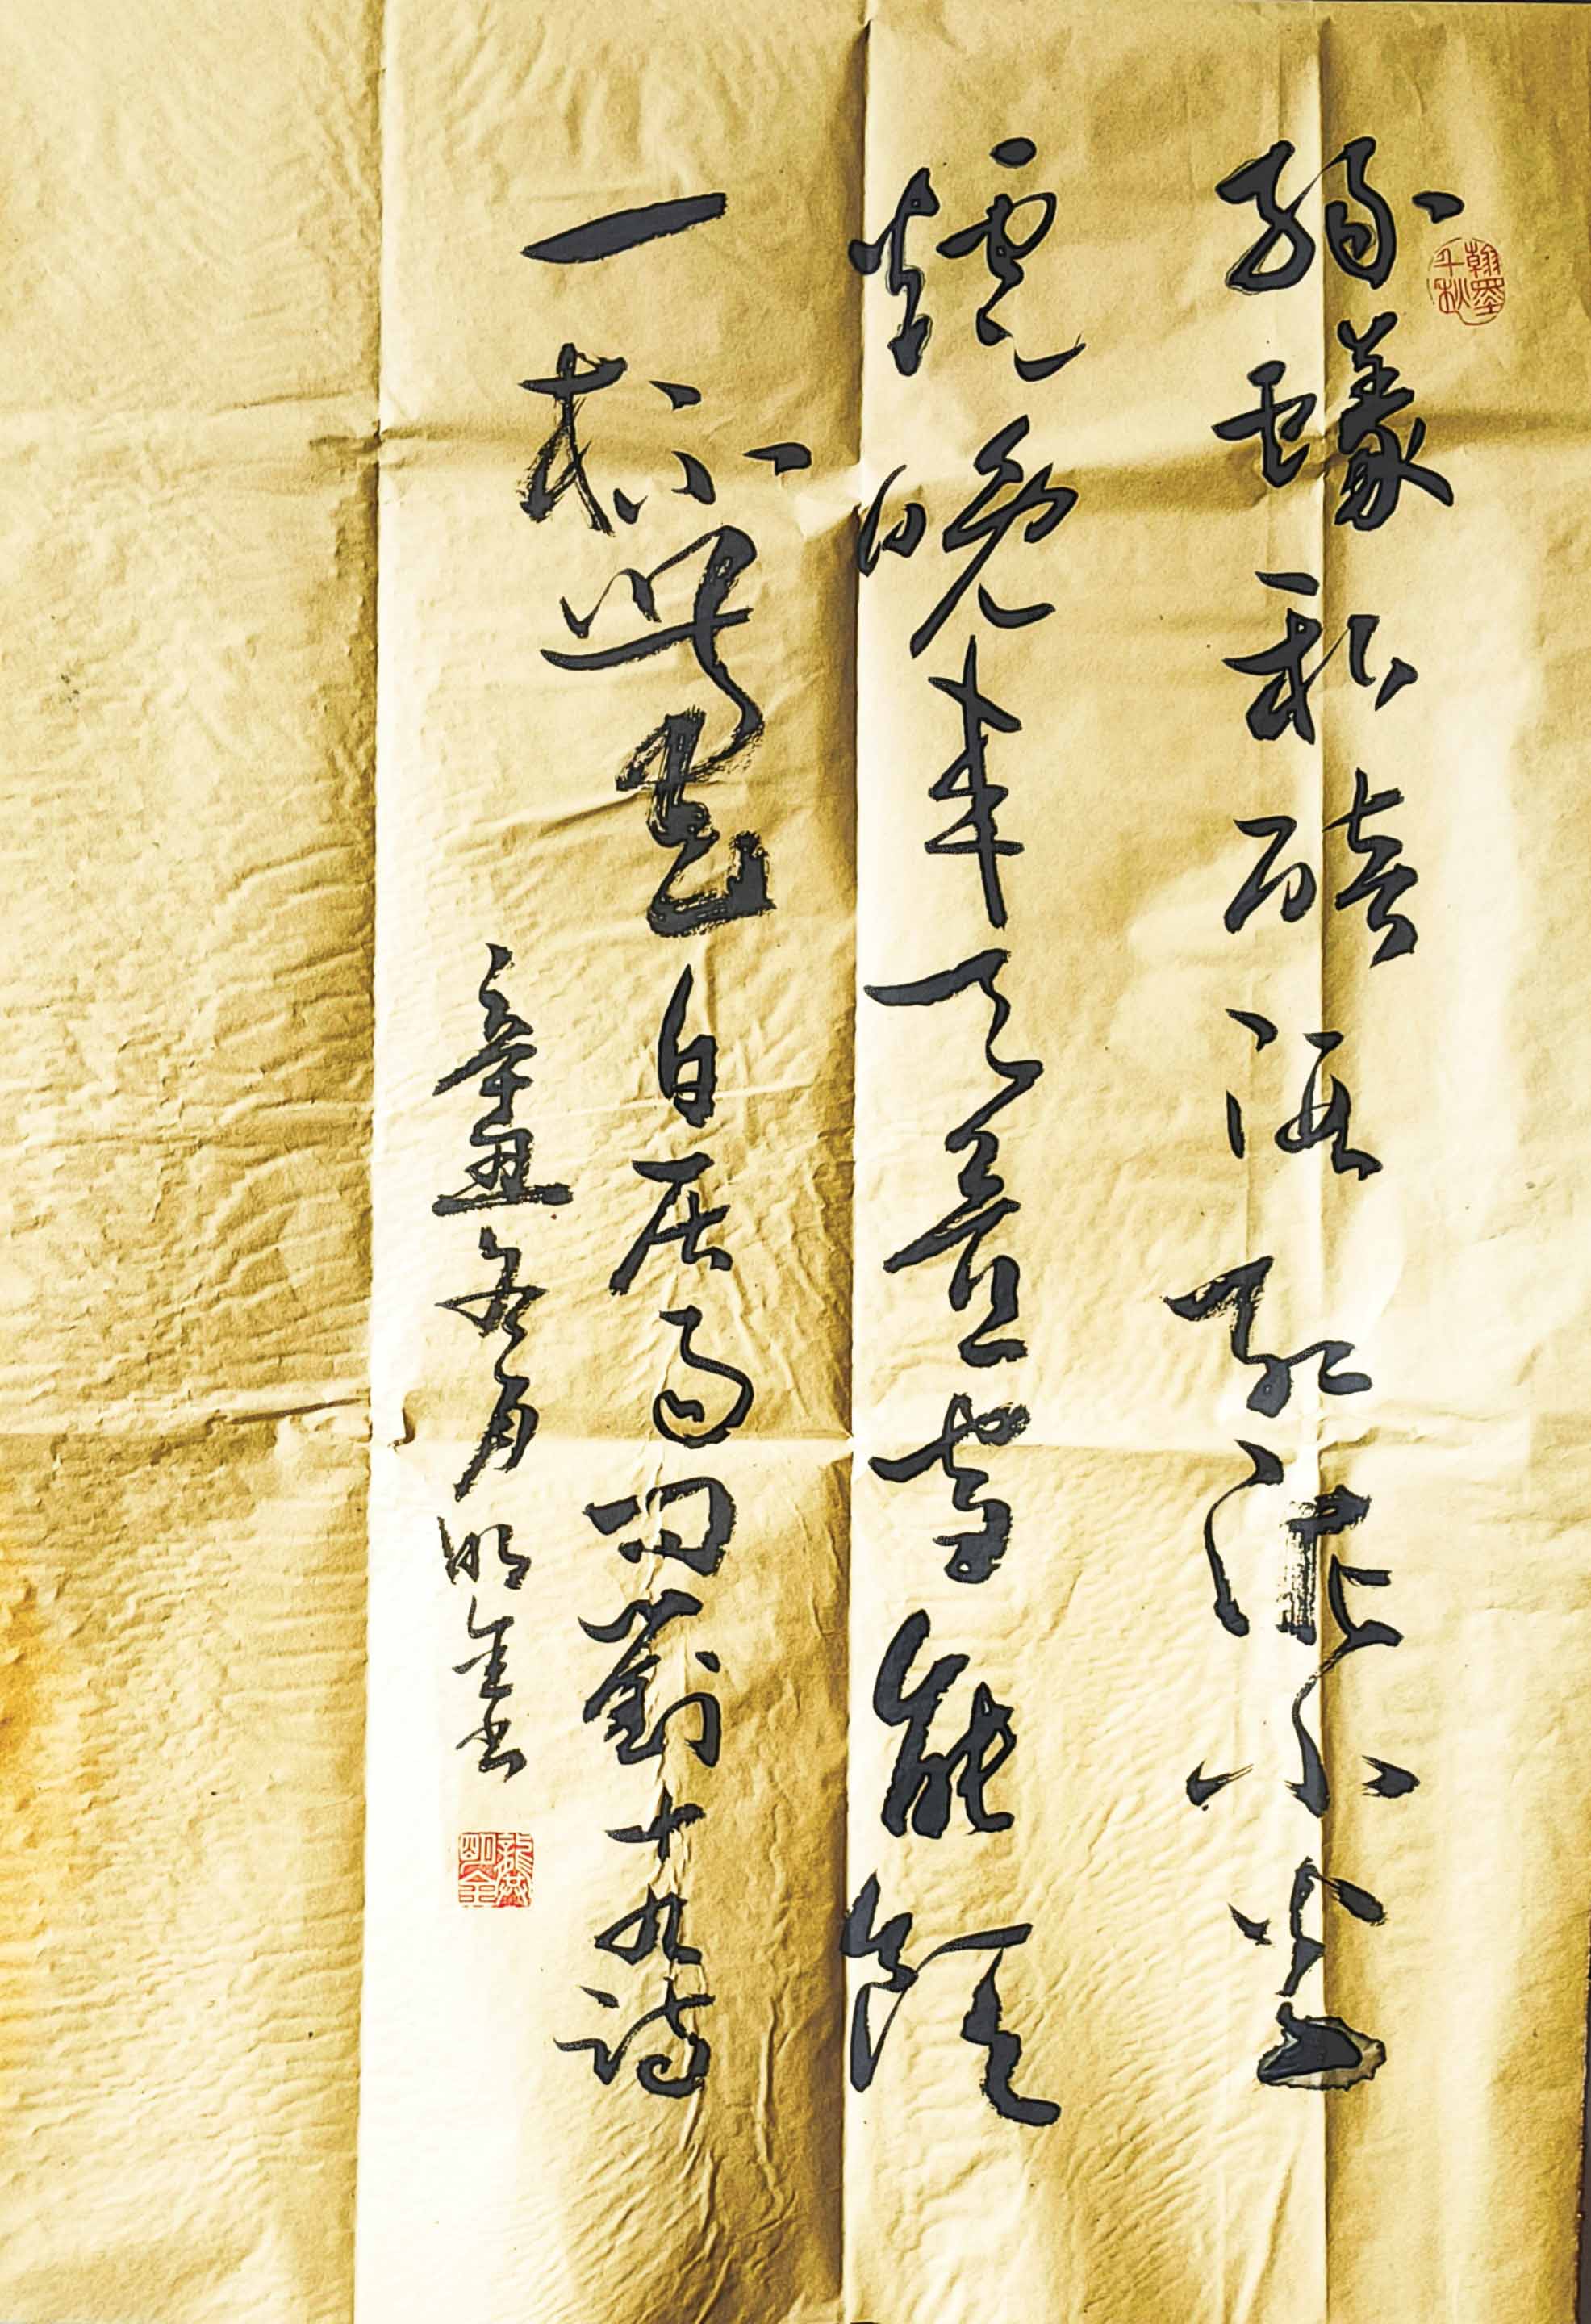 翰墨千秋
緑蟻新醅酒紅泥小火
爐晚来天欲雪能飲
一杯無白居易問劉十九詩
辛丑冬月明金書